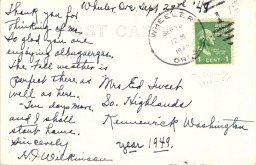 Wheeler, Ore Sept 29th '48
Thank you for
thinking of me.
So glad you are
enjoying albuquerque.
The Fall weather is
perfect there as
well as here.
Ten days more
and I shall
start home.
Sincerely
H.J. Wilkinson
WHEELER
SEP
M
194
ORE
1 CENT 1
Mrs Ed Tweet
So. Highlands
Kennewick Washington
year 1949.